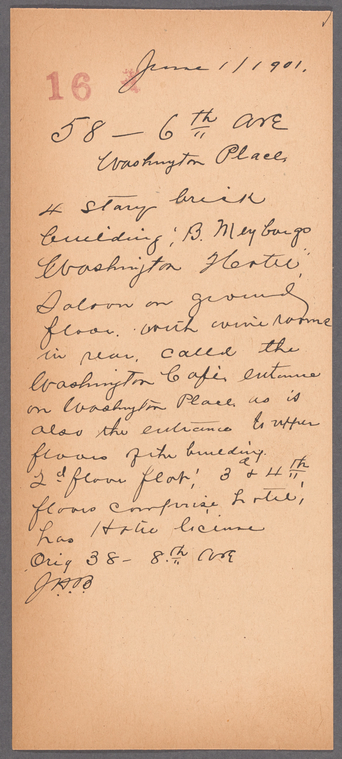 16
June 1/1901.
58 - 6th AvE
Washington Place,
4 Story brick
building; B. Meyborgs
Washington Hotel;
Saloon on ground
floor. with wine rooms
in rear, called the
Washington Cafe, entrance
on Washington Place, as is
also the entrance to upper
floors of the building.
2d floor flat; 3d & 4th
floors comprise hotel;
has Hotel license
Orig 38 - 8th AvE
J.A.B